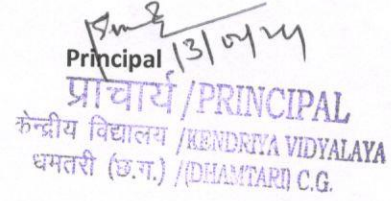 Principal 13/04/24
प्राचार्य /PRINCIPAL
केन्द्रीय विद्यालय /KENDRIYA VIDYALAYA
धमतरी (छ.ग.) /(DHAMTARI) C.G.